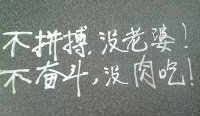 不拼搏,没老婆!
不奋斗,没肉吃!